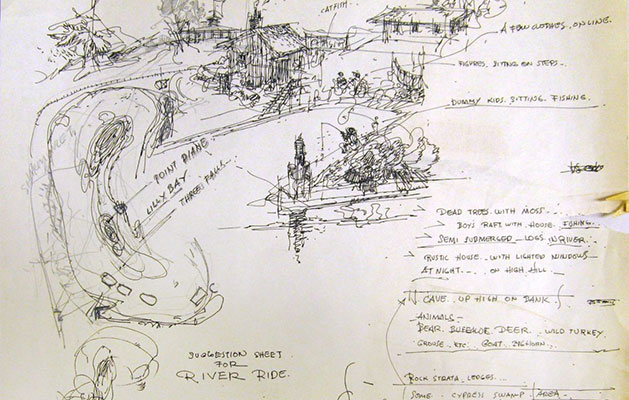 CATFISH.
A FEW CLOTHES ON LINE.
FIGURES. SITTING ON STEPS.
DUMMY KIDS. SITTING. FISHING.
POINT DIANE
LILLY BAY
THREE FALLS
DEAD TREES WITH MOSS
BOYS RAFT WITH HOUSE FISHING.
SEMI SUBMERGED LOGS IN RIVER.
RUSTIC HOUSE WITH LIGHTED WINDOWS
AT NIGHT. ON HIGH HILL.
CAVE UP HIGH ON BANK
ANIMALS
BEAR. DEER. WILD TURKEY.
GROUSE. ETC. GOAT.
ROCK STRATA. LEDGES.
SOME CYPRESS SWAMP AREA
SUGGESTION SHEET
FOR
RIVER RIDE.